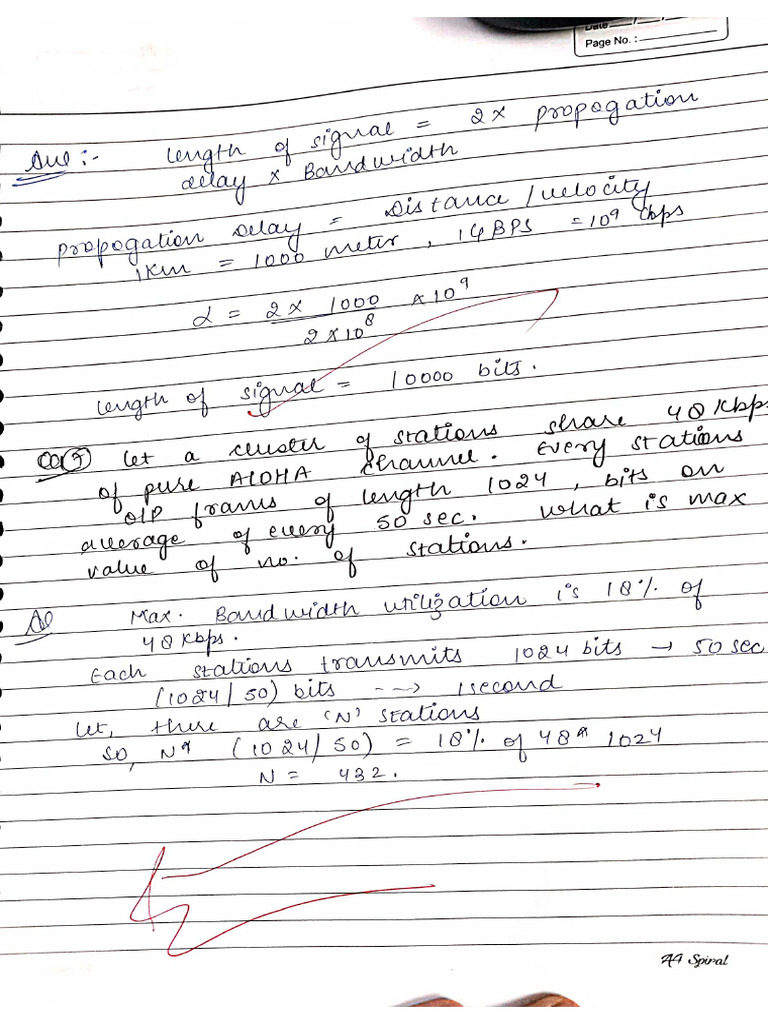 Date / /
Page No. :
Ans :- length of signal = 2 x propogation
delay x Bandwidth
propogation Delay = Distance / velocity
1Km = 1000 meter, 1GBPS = 10⁹ bps
L = 2 x 1000 x 10⁹
2 x 10⁸
length of signal = 10000 bits.
let a cluster of stations share 48 Kbps
of pure ALOHA channel. Every stations
O/P frams of length 1024, bits on
average of every 50 sec. what is max
value of no. of stations.
Max. Bandwidth utilization is 18% of
48 Kbps.
Each stations transmits 1024 bits → 50 sec
(1024/50) bits --→ 1 second
let, there are 'N' stations
So, N* (1024/50) = 18% of 48* 1024
N = 432.
A4 Spiral